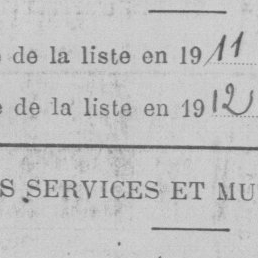 de la liste en 1911
de la liste en 1912
S SERVICES ET MU